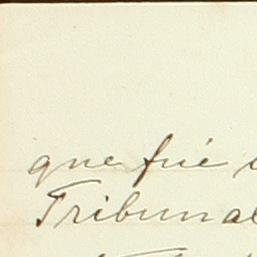 que fué
Tribunal